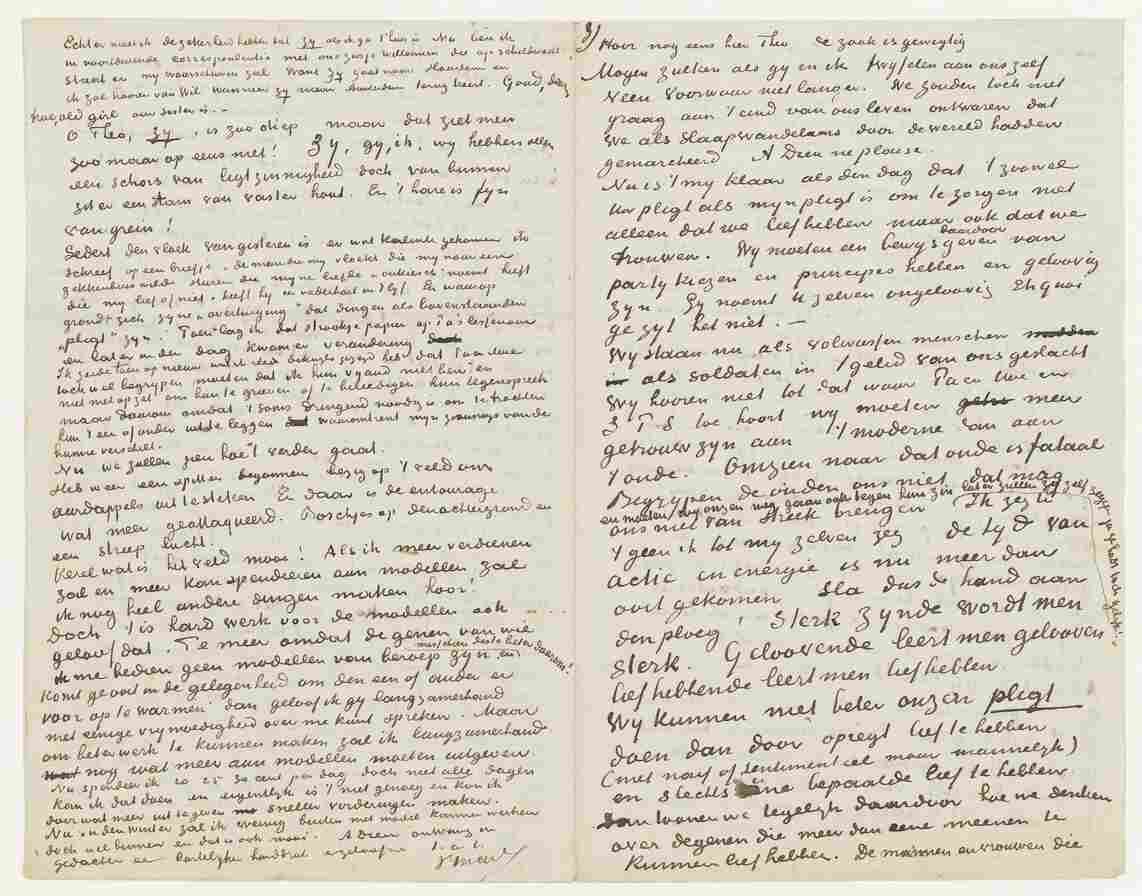 Echter moet ik de zekerheid hebben dat zy als ik ga Thuis is Nu ben ik
in voortdurende correspondentie met ons zusje willemien die op schildwacht
staat en my waarschuwen zal want zy gaat naar Haarlem en
ik zal hooren van Wil wanneer zy naar Amsterdam terug keert. Goed, deegelyk
old girl our sister is. –
O Theo, zy, is zoo diep maar dat ziet men
zoo maar op eens niet! Zy, gy, ik, wy hebben allen
een schors van ligtzinnigheid doch van binnen
zit er een stam van vaster hout. En 't hare is fyn
van grein!
Sedert den vloek van gisteren is er wat kalmte gekomen Ik
schreef op een briefje „de man die my vloekt die my naar een
gekkenhuis wilde sturen die myne liefde „ontkiesch" noemt heeft
die my lief of niet. heeft hy in vaderhart in 't lyf. En waarop
grondt zich zyne „overtuiging" dat dingen als bovenstaanden
„pligt" zyn." Toen lag ik dat strookje papier op Pa's lessenaar
en later in den dag kwam er verandering
Ik zeide toen op nieuw wat ik reeds dikwijls gezegd heb, dat Pa en Moe
toch wel begrypen moeten dat ik hun vyand niet ben en
niet met opzet om hun te grieven of te beleedigen hun tegenspreek
maar daarom omdat 't soms dringend noodig is om te trachten
hun 't een of ander uit te leggen waaromtrent myn zienswys van de
hunne verschilt.
Nu we zullen zien hoe 't verder gaat.
Heb weer een spitter begonnen bezig op 't veld om
aardappels uit te steken En daar is de entourage
wat meer geattaqueerd. Boschjes op den achtergrond en
een streep lucht.
Kerel wat is het veld mooi! Als ik meer verdienen
zal en meer kan spendieren aan modellen zal
ik nog heel andere dingen maken hoor!
Doch 't is hard werk voor de modellen ook
geloof dat. Te meer omdat de genen van wie
ik me bedien geen modellen van beroep zyn, en misschien des te beter daarom!
Komt ge ooit in de gelegenheid om den een of ander er
voor op te warmen dan geloof ik gy langzamerhand
met eenige vrymoedigheid over me kunt spreken. Maar
om beter werk te kunnen maken zal ik langzamerhand
nog wat meer aan modellen moeten uitgeven.
Nu spendeer ik 20 25 30 cent per dag doch niet alle dagen
kan ik dat doen en eigenlyk is 't niet genoeg en kon ik
door wat meer uit te geven sneller vorderingen maken.
Nu in den winter zal ik weinig buiten met model kunnen werken
doch wel binnen en dat is ook mooi. Adieu ontvang in
gedachten een hartelyke handdruk en geloof me t. à. t.
Vincent
3/ Hoor nog eens hier Theo de zaak is gewigtig
Mogen zulken als gy en ik twyfelen aan ons zelf
Neen voorwaar niet langer. We zouden toch niet
graag aan 't eind van ons leven ontwaren dat
we als slaapwandelaars door de wereld hadden
gemarcheerd A Dieu ne plaise.
Nu is 't my klaar als den dag dat 't zoowel
Uw pligt als myn pligt is om te zorgen niet
alleen dat we lief hebben maar ook dat we
trouwen. Wy moeten een bewys daardoor geven van
party kiezen en principes hebben en geloovig
zyn. Gy noemt U zelven ongeloovig Eh quoi
ge zyt het niet. –
Wy staan nu als volwassen menschen midden
in als soldaten in 't gelid van ons geslacht
Wy hooren niet tot dat waar Pa en Moe en
S T S toe hoort wy moeten meer
getrouw zyn aan 't moderne dan aan
't oude. Omzien naar dat oude is fataal
Begrypen de ouden ons niet dat mag
ons niet van streek brengen
en moeten wy onzen weg gaan ook tegen hun zin later zullen zy zelf zeggen ja gy hadt toch gelyk!
Ik zeg U
't geen ik tot my zelven zeg de tyd van
actie en energie is nu meer dan
ooit gekomen Sla dus de hand aan
den ploeg! Sterk zynde wordt men
sterk. Geloovende leert men gelooven
liefhebbende leert men liefhebben.
Wy kunnen niet beter onzen pligt
doen dan door opregt lief te hebben
(niet naif of sentimenteel maar mannelyk)
en slechts eene bepaalde lief te hebben
dan toonen we tegelyk daardoor hoe we denken
over degenen die meer dan eene meenen te
kunnen lief hebben. De mannen en vrouwen die